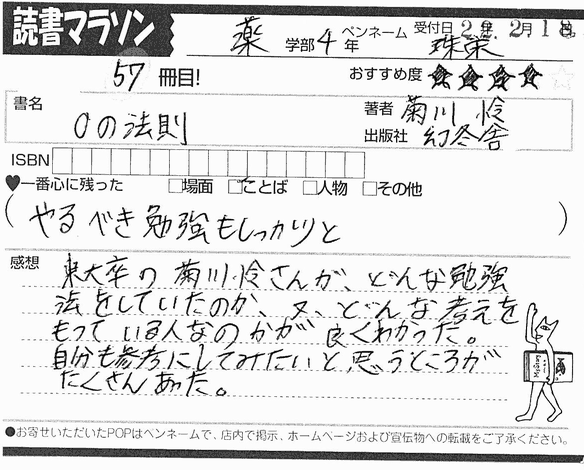 読書マラソン
薬 学部 4 年 ペンネーム 珠栄 受付日 20.2月18日
57 冊目! おすすめ度 ★★★★☆
書名 0の法則
著者 菊川 怜
出版社 幻冬舎
ISBN
♥一番心に残った □場面 □ことば □人物 □その他
(やるべき勉強もしっかりと)
感想
東大卒の菊川怜さんが、どんな勉強
法をしていたのか、又、どんな考えを
もっている人なのかが良くわかった。
自分も参考にしてみたいと思うところが
たくさんあった。
●お寄せいただいたPOPはペンネームで、店内で掲示、ホームページおよび宣伝物への転載をご了承ください。